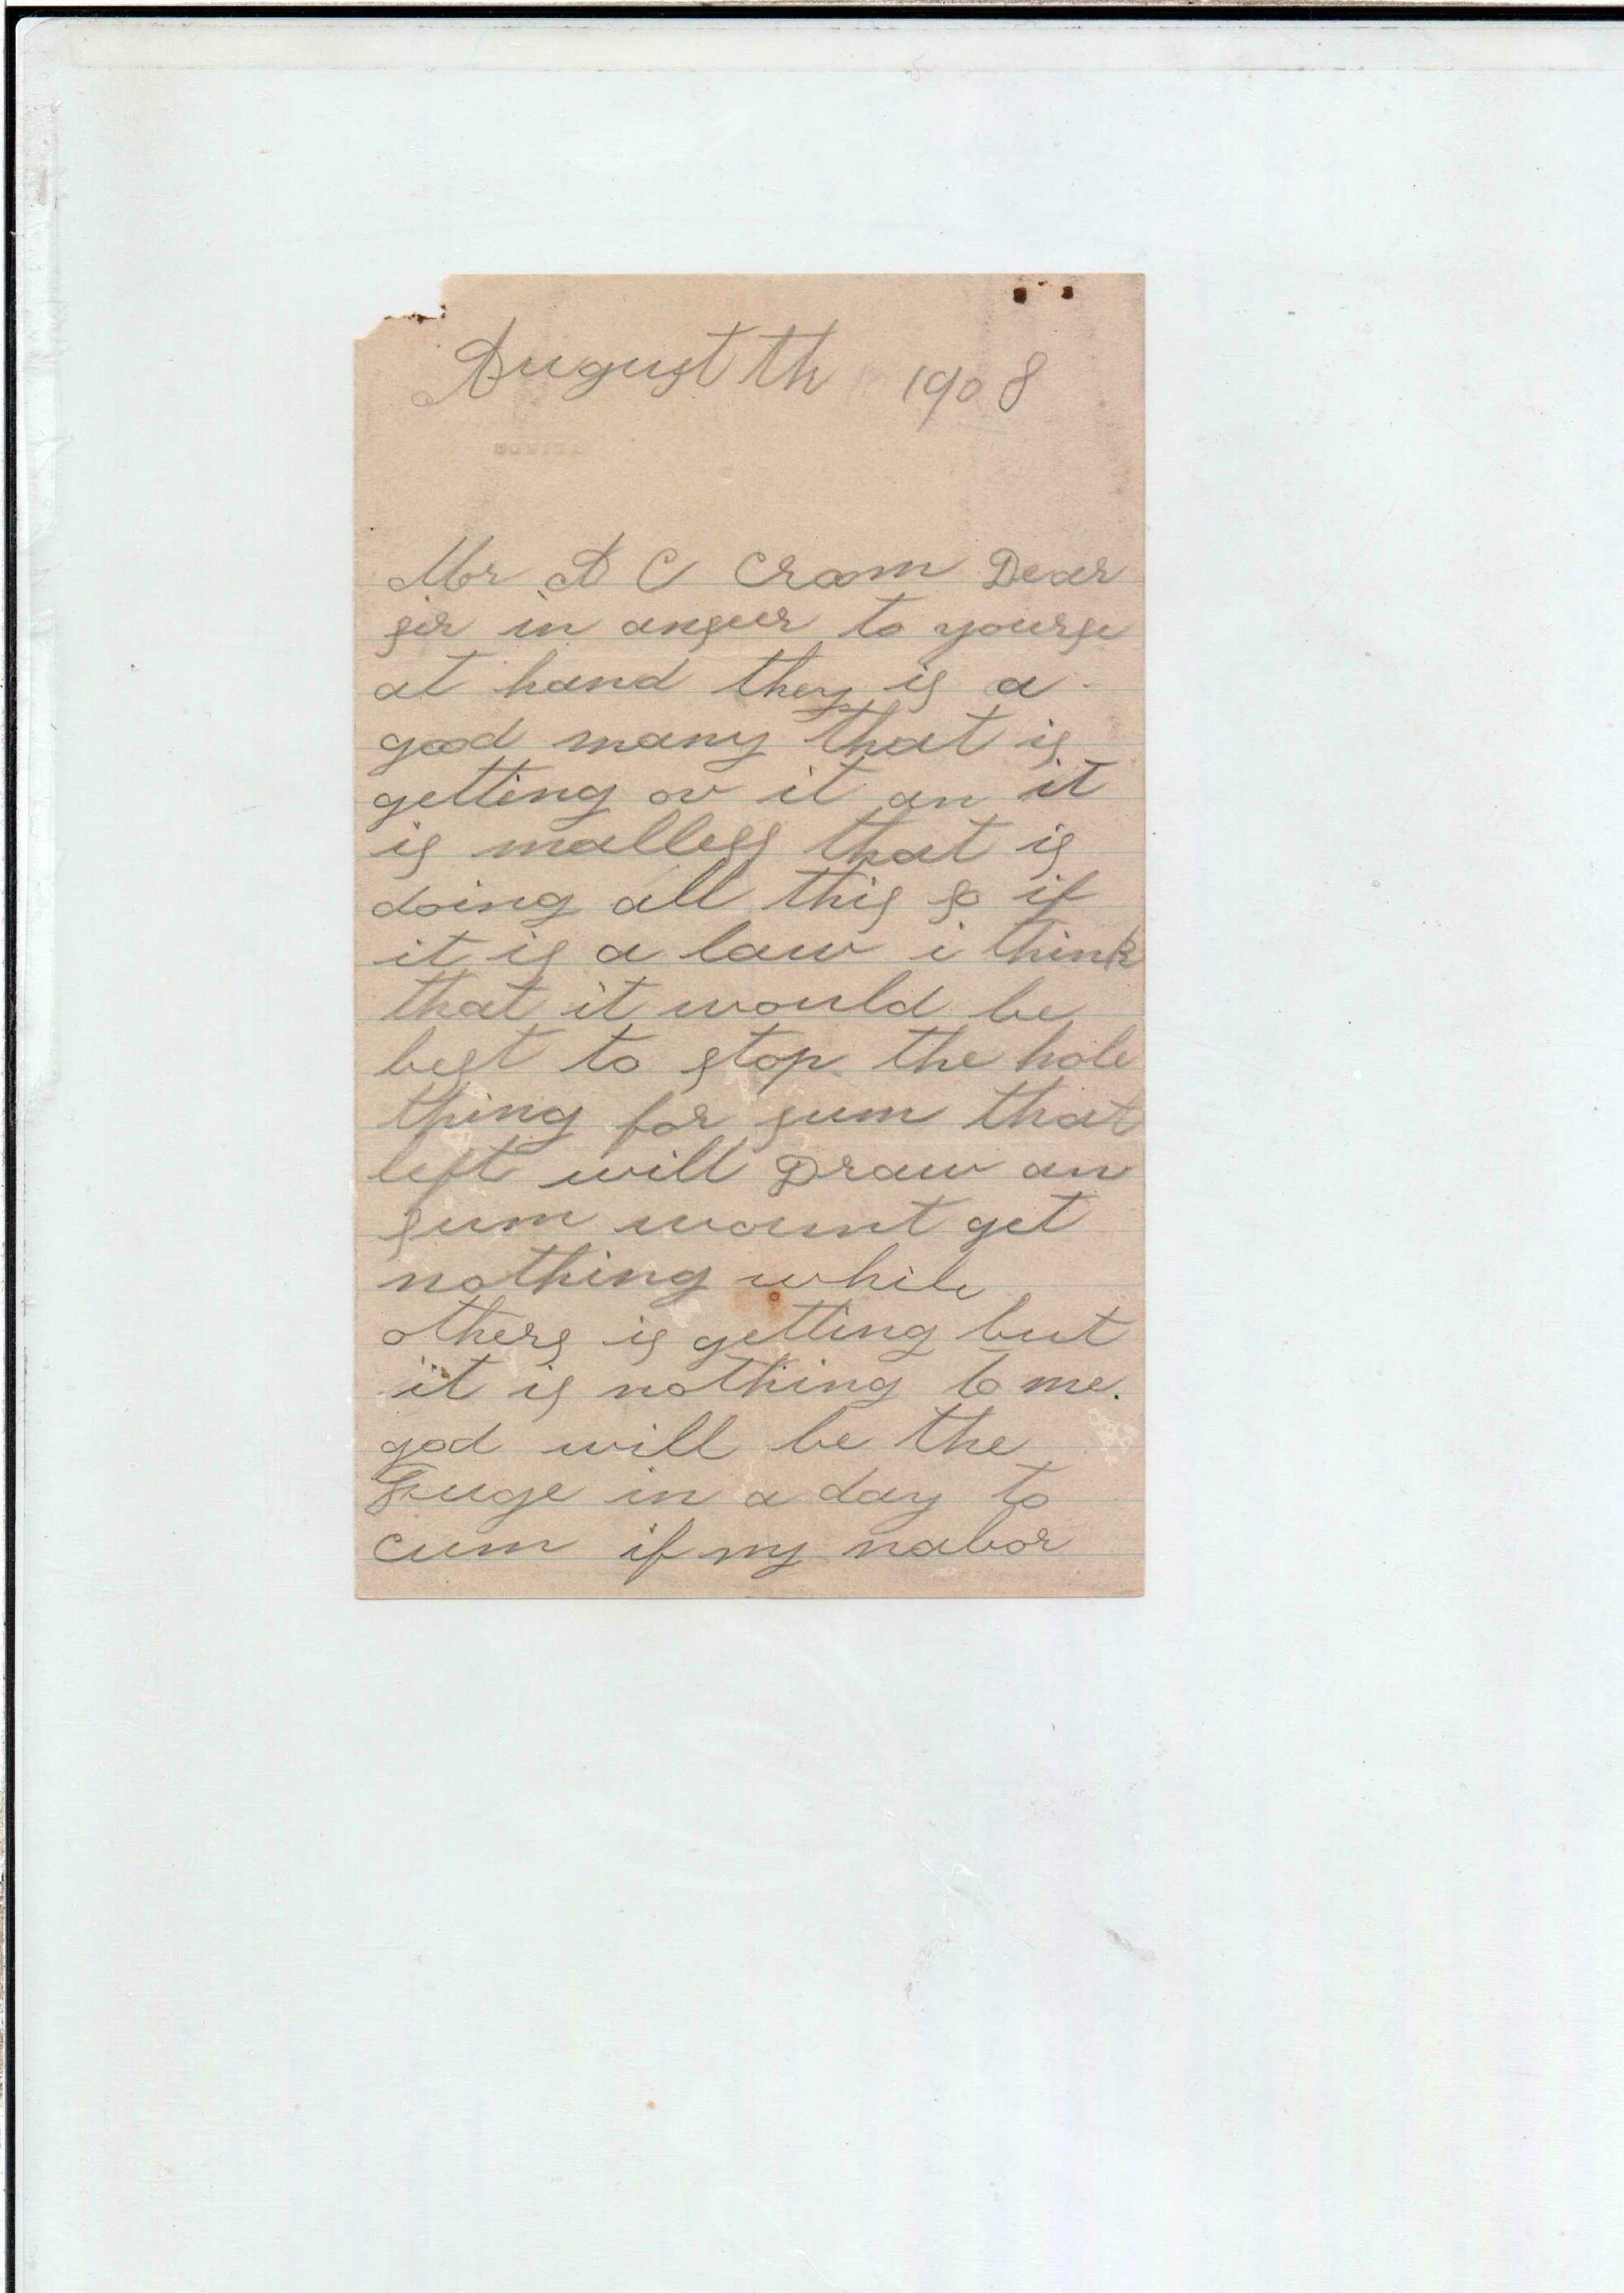 August th 1908
Mr A C Croom Dear
sir in anseer to yourse
at hand they is a
good many that is
getting ov it an it
is malless that is
doing all this so if
it is a law i think
that it would be
best to stop the hole
thing for sum that
left will Draw an
sum wount get
nothing while
others is getting but
it is nothing to me.
god will be the
Juge in a day to
cum if my nabor